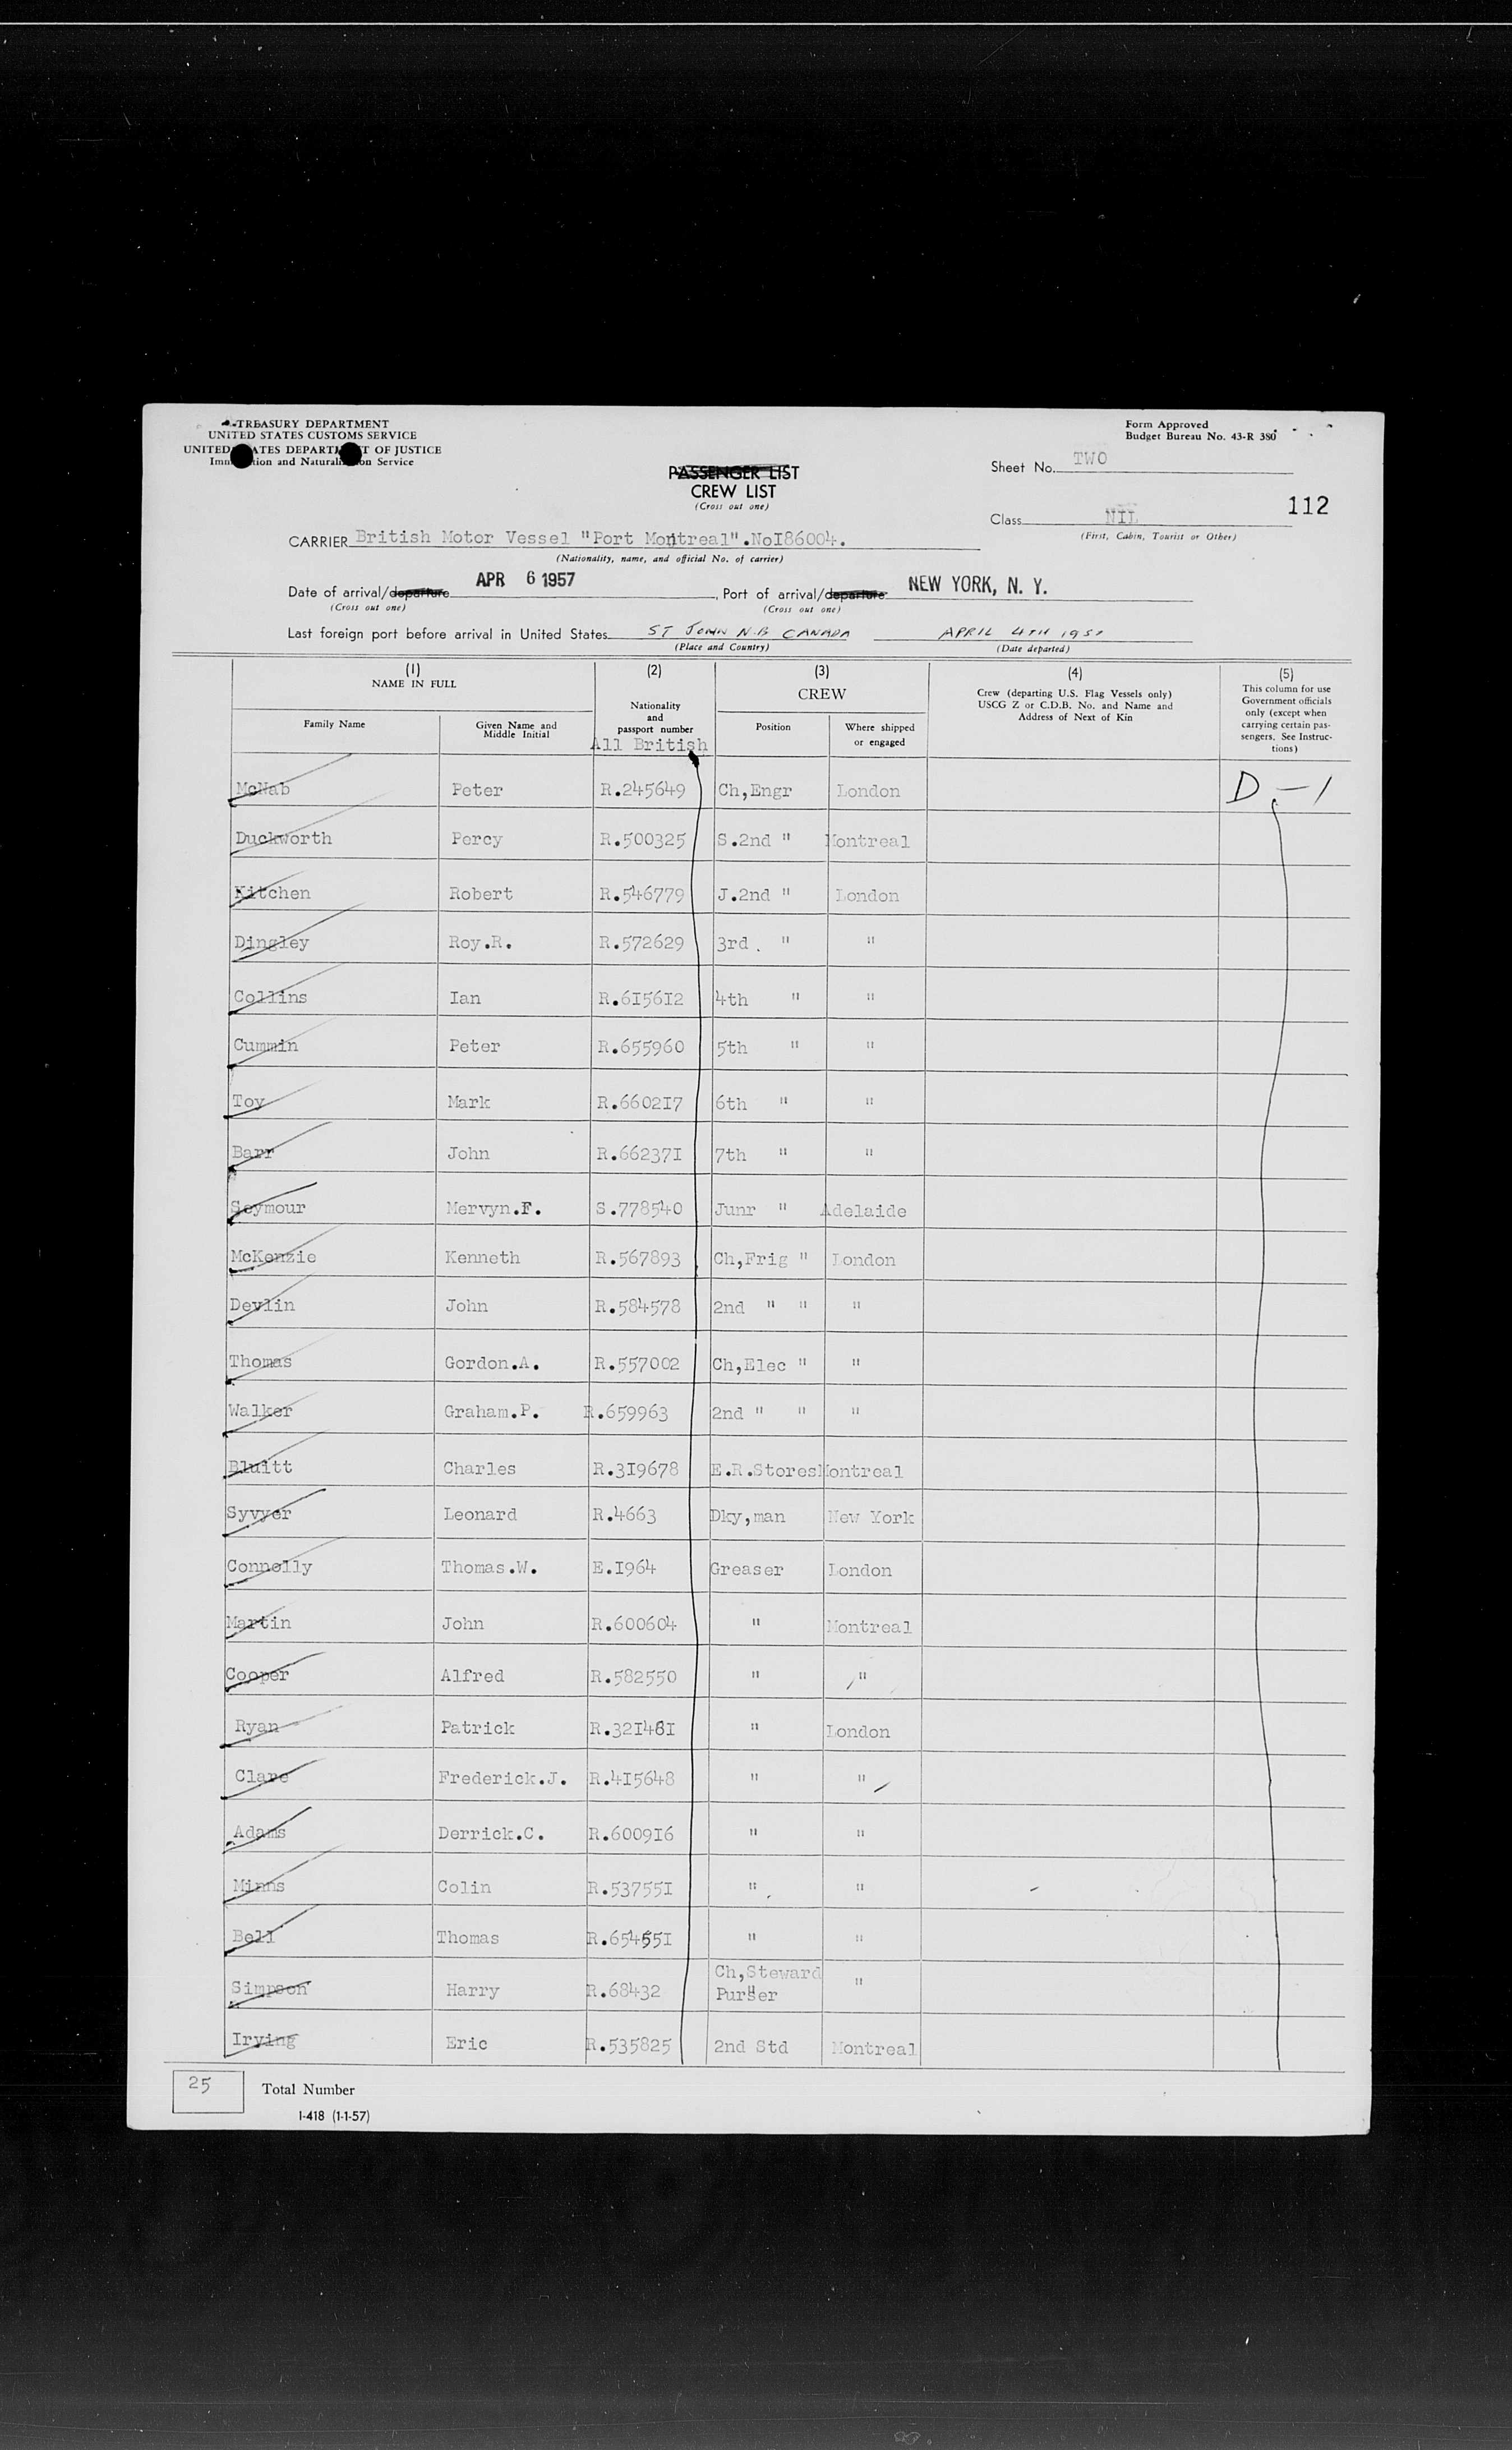 TREASURY DEPARTMENT
UNITED STATES CUSTOMS SERVICE
UNITED ATES DEPART T OF JUSTICE
Imm tion and Naturali on Service
Form Approved
Budget Bureau No. 43-R 380
PASSENGER LIST
CREW LIST
(Cross out one)
Sheet No. TWO
112
Class NIL
(First, Cabin, Tourist or Other)
CARRIER British Motor Vessel "Port Montreal".NoI86004.
(Nationality, name, and official No. of carrier)
Date of arrival/departure APR 6 1957, Port of arrival/departure NEW YORK, N. Y.
(Cross out one) (Cross out one)
Last foreign port before arrival in United States ST JOHN N.B CANADA APRIL 4TH 1957
(Place and Country) (Date departed)
(1) NAME IN FULL
Family Name
Given Name and Middle Initial
(2)
Nationality
and
passport number
All British
(3)
CREW
Position
Where shipped
or engaged
(4)
Crew (departing U.S. Flag Vessels only)
USCG Z or C.D.B. No. and Name and
Address of Next of Kin
(5)
This column for use
Government officials
only (except when
carrying certain pas-
sengers. See Instruc-
tions)
McNab Peter R.245649 Ch,Engr London D - 1
Duckworth Percy R.500325 S.2nd " Montreal
Kitchen Robert R.546779 J.2nd " London
Dingley Roy.R. R.572629 3rd. " "
Collins Ian R.6I56I2 4th " "
Cummin Peter R.655960 5th " "
Toy Mark R.6602I7 6th " "
Barr John R.66237I 7th " "
Seymour Mervyn.F. S.778540 Junr " Adelaide
McKenzie Kenneth R.567893 Ch,Frig " London
Devlin John R.584578 2nd " " "
Thomas Gordon.A. R.557002 Ch,Elec " "
Walker Graham.P. R.659963 2nd " " "
Bluitt Charles R.3I9678 E.R.Stores Montreal
Syvyer Leonard R.4663 Dky,man New York
Connolly Thomas.W. E.I964 Greaser London
Martin John R.600604 " Montreal
Cooper Alfred R.582550 " "
Ryan Patrick R.32I48I " London
Clare Frederick.J. R.4I5648 " "
Adams Derrick.C. R.6009I6 " "
Minns Colin R.53755I " "
Bell Thomas R.65455I " "
Simpson Harry R.68432 Ch,Steward "
Purser
Irving Eric R.535825 2nd Std Montreal
25 Total Number
I-418 (1-1-57)